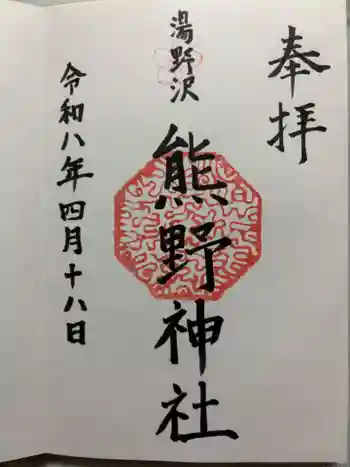 奉拝
湯野沢
熊野神社
令和八年四月十八日